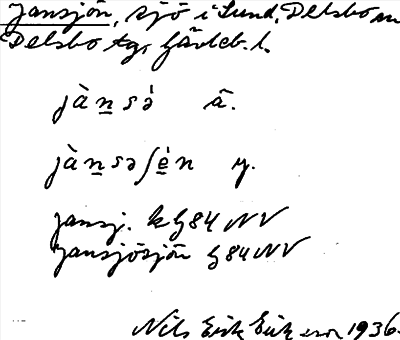 Jansjön, sjö i Sund, Delsbo sn
Delsbo tg, Gävleb. l.
jànsə̀ ä.
jànsəʃèn y.
Jansj. k G84 NV
Jansjösjön G84 NV
Nils Erik Eriksson 1936.